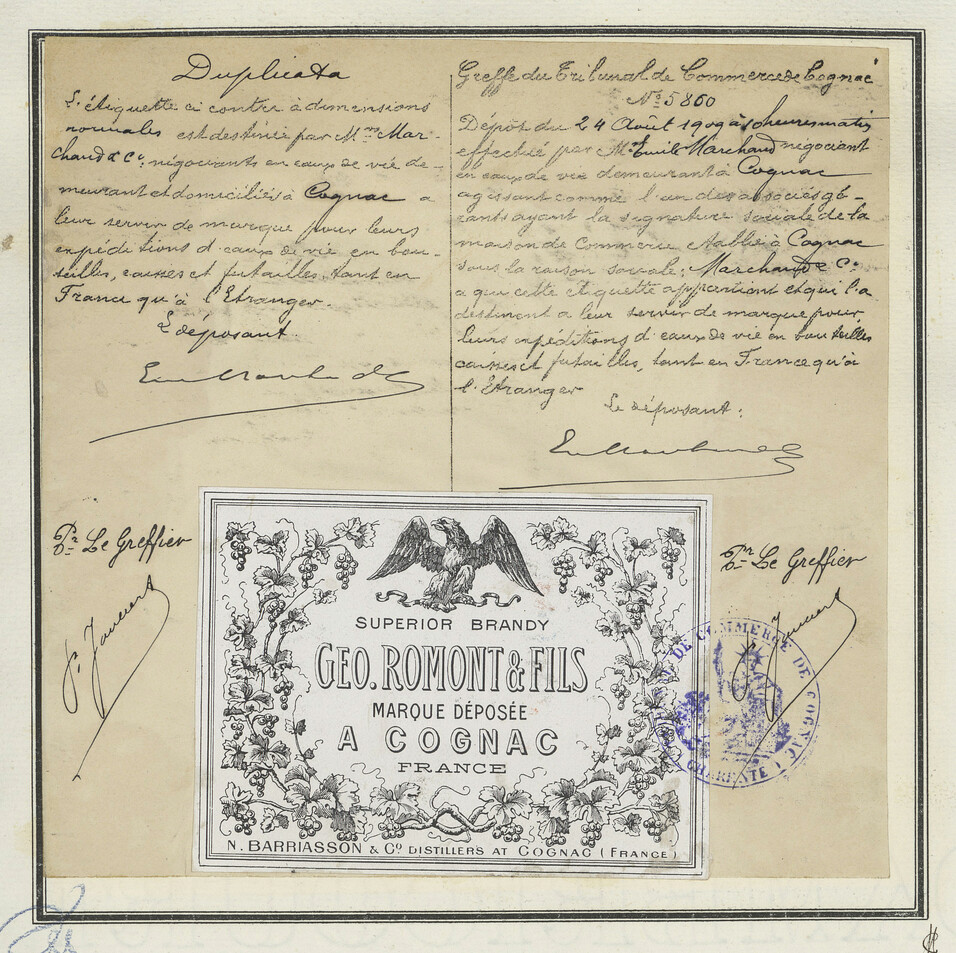 Duplicata
L'étiquette ci contre à dimensions
normales est destinée par Mrs Mar-
chand & Co. négociants en eaux de vie de-
meurant et domiciliés à Cognac a
leur servir de marque pour leurs
expéditions d'eaux de vie en bou-
teilles, caisses et futailles, tant en
France qu'à l'Etranger.
Le déposant
Greffe du Tribunal de Commerce de Cognac
No 5860
Dépôt du 24 Août 1909 à heures matin
effectué par Mr Emile Marchand négociant
en eaux de vie demeurant à Cognac
agissant comme l'un des associés gé-
rants ayant la signature sociale de la
maison de Commerce établie à Cognac
sous la raison sociale; Marchand & Co.
a qui cette étiquette appartient et qui l'a
destinent a leur servir de marque pour
leurs expéditions d'eaux de vie en bouteilles
caisses et futailles, tant en France qu'à
l'Etranger
Le déposant:
Pr Le Greffier
Pr Le Greffier
SUPERIOR BRANDY
GEO. ROMONT & FILS
MARQUE DÉPOSÉE
A COGNAC
FRANCE
N. BARRIASSON & Co DISTILLERS AT COGNAC (FRANCE)
DE COMMERCE DE COGNAC
CHARENTE